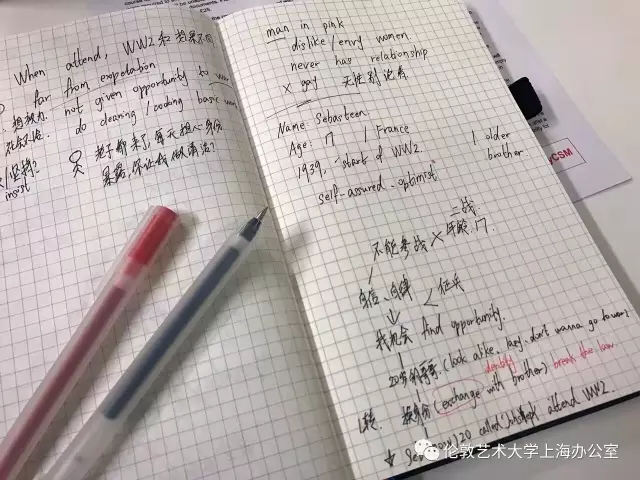 When attend, WW2 和 想象不同.
far from expectation
not given opportunity to
do cleaning / cooking basic
坚持?
insist
老子都来了,每天担心身份
暴露,你让我做清洁?
man in pink
dislike/envy women.
never has relationship
× gay 无性别论者
Name: Sebasteen.
Age: 17 / France
1939, start of WW2
1 older
brother
self-assured. optimist
二战.
不能参战 × 年龄:17.
自信、自律 < 征兵
找机会 find opportunity.
20岁的哥哥. (look alike, lazy. don't wanna go to war)
identity
换身份 (exchange with brother) break the law
20 called attend WW2.
CSM
伦敦艺术大学上海办公室